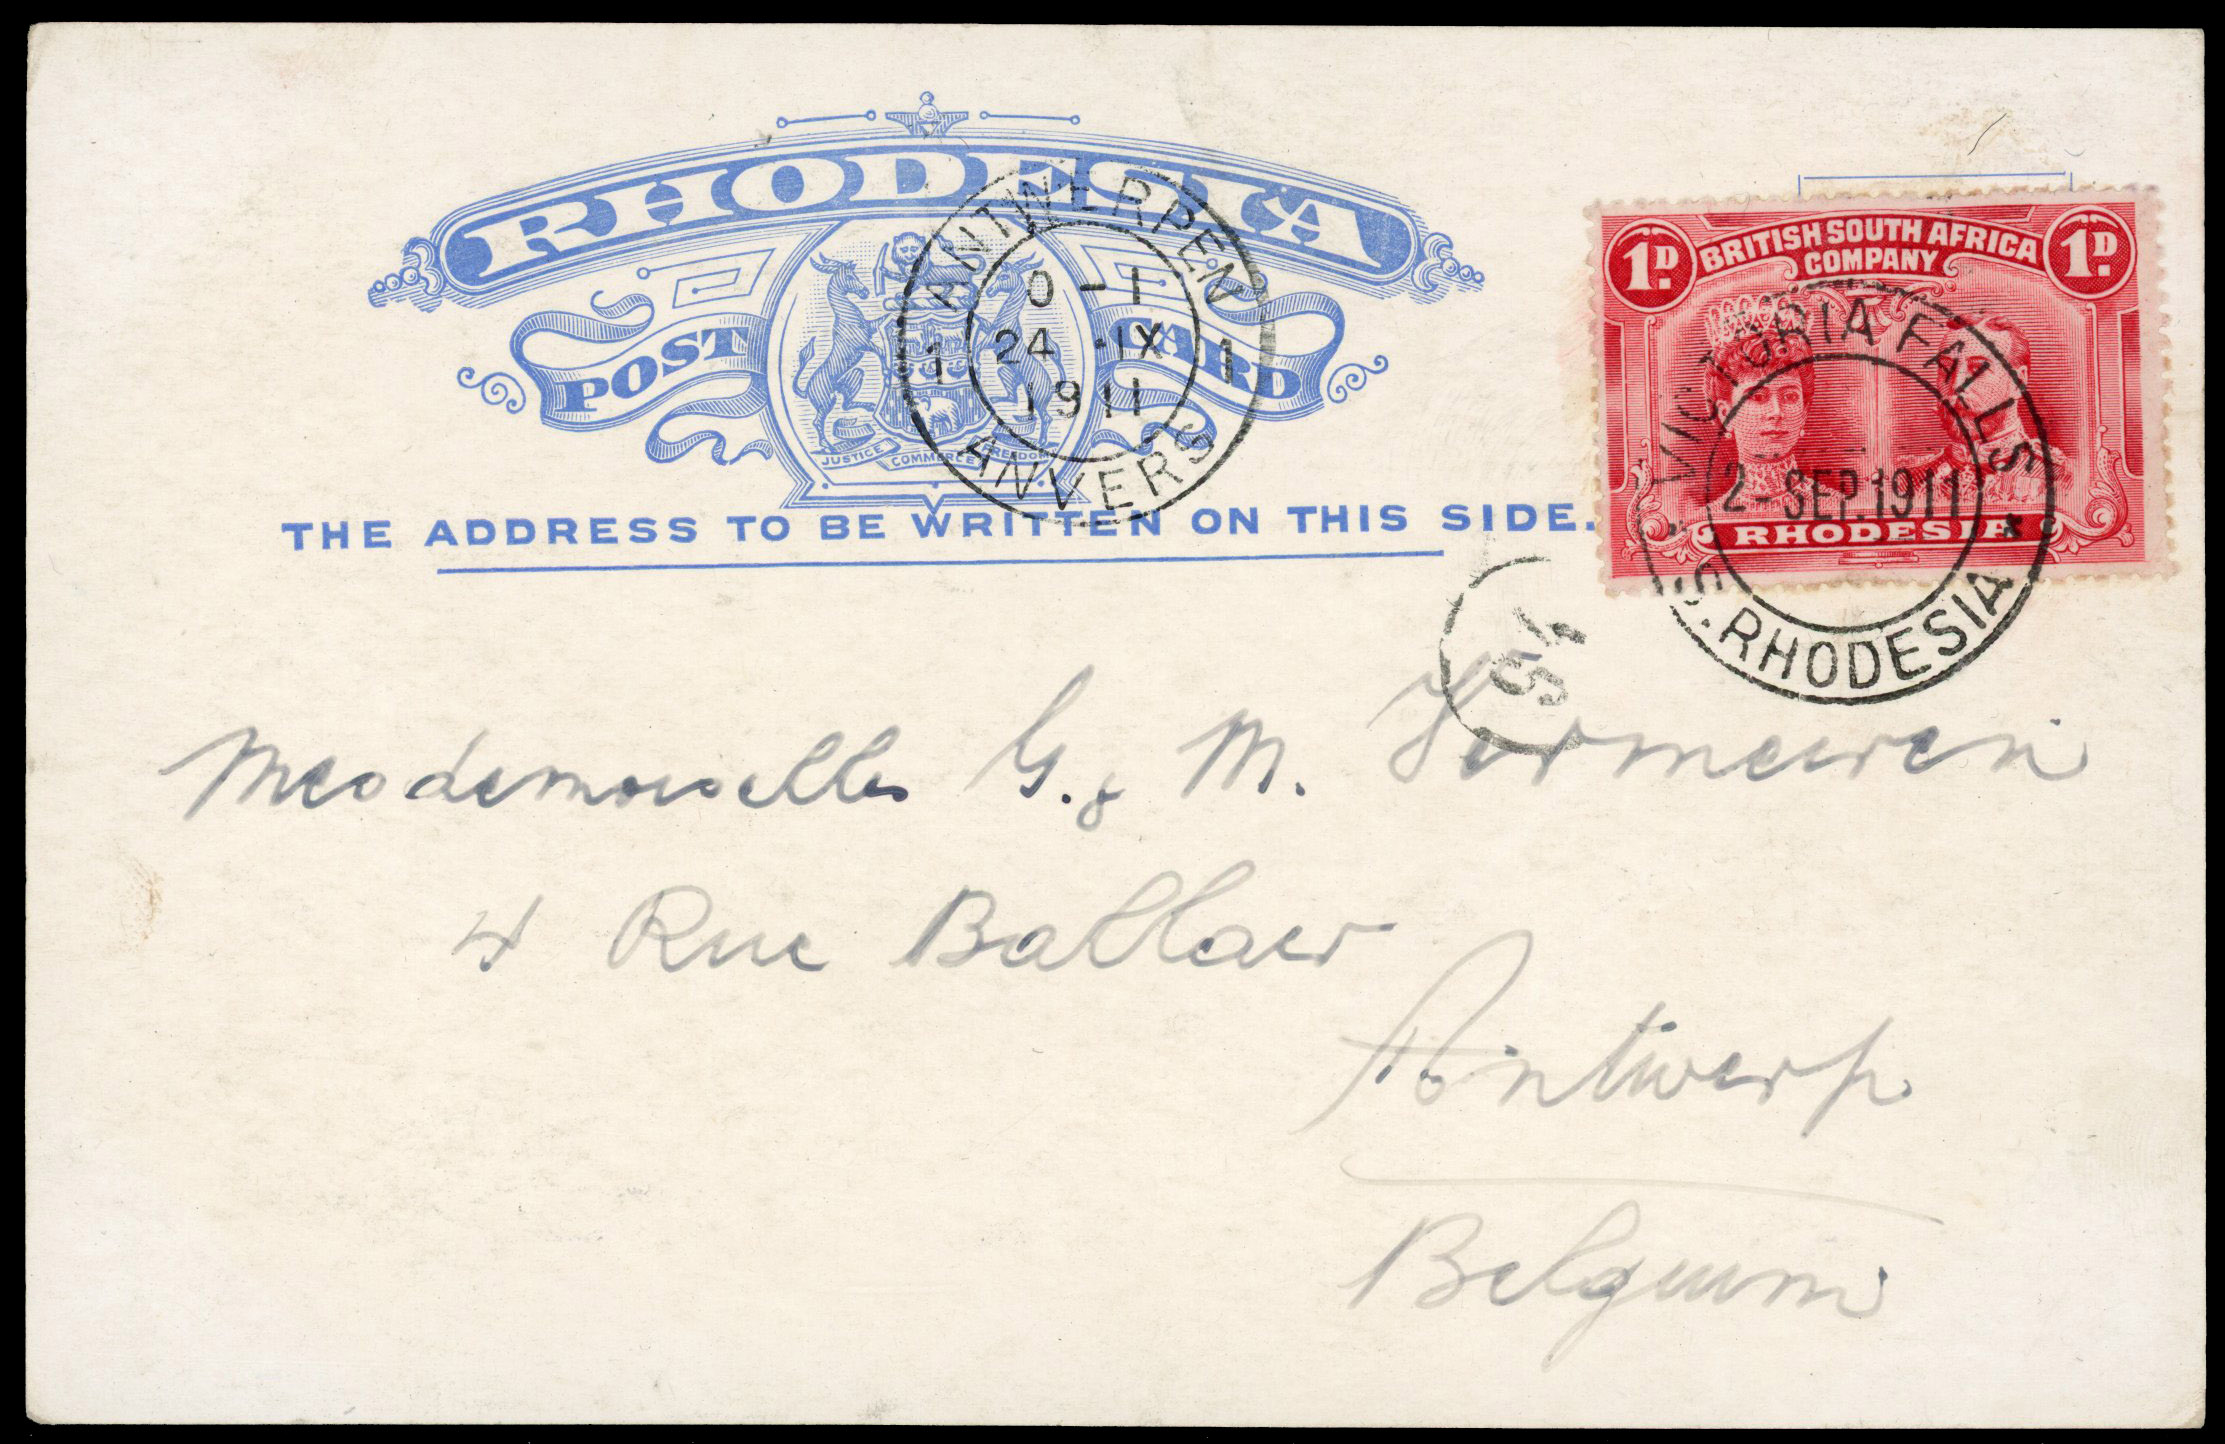 RHODESIA
POST CARD
JUSTICE COMMERCE FREEDOM
THE ADDRESS TO BE WRITTEN ON THIS SIDE.
ANTWERPEN
0 - 1
1 24 · IX 1
1911
ANVERS
1D. BRITISH SOUTH AFRICA 1D.
COMPANY
RHODESIA
VICTORIA FALLS
2 - SEP. 1911
S. RHODESIA
Mesdemoiselles G. & M. Vermeiren
4 Rue Ballaer
Antwerp
Belgium